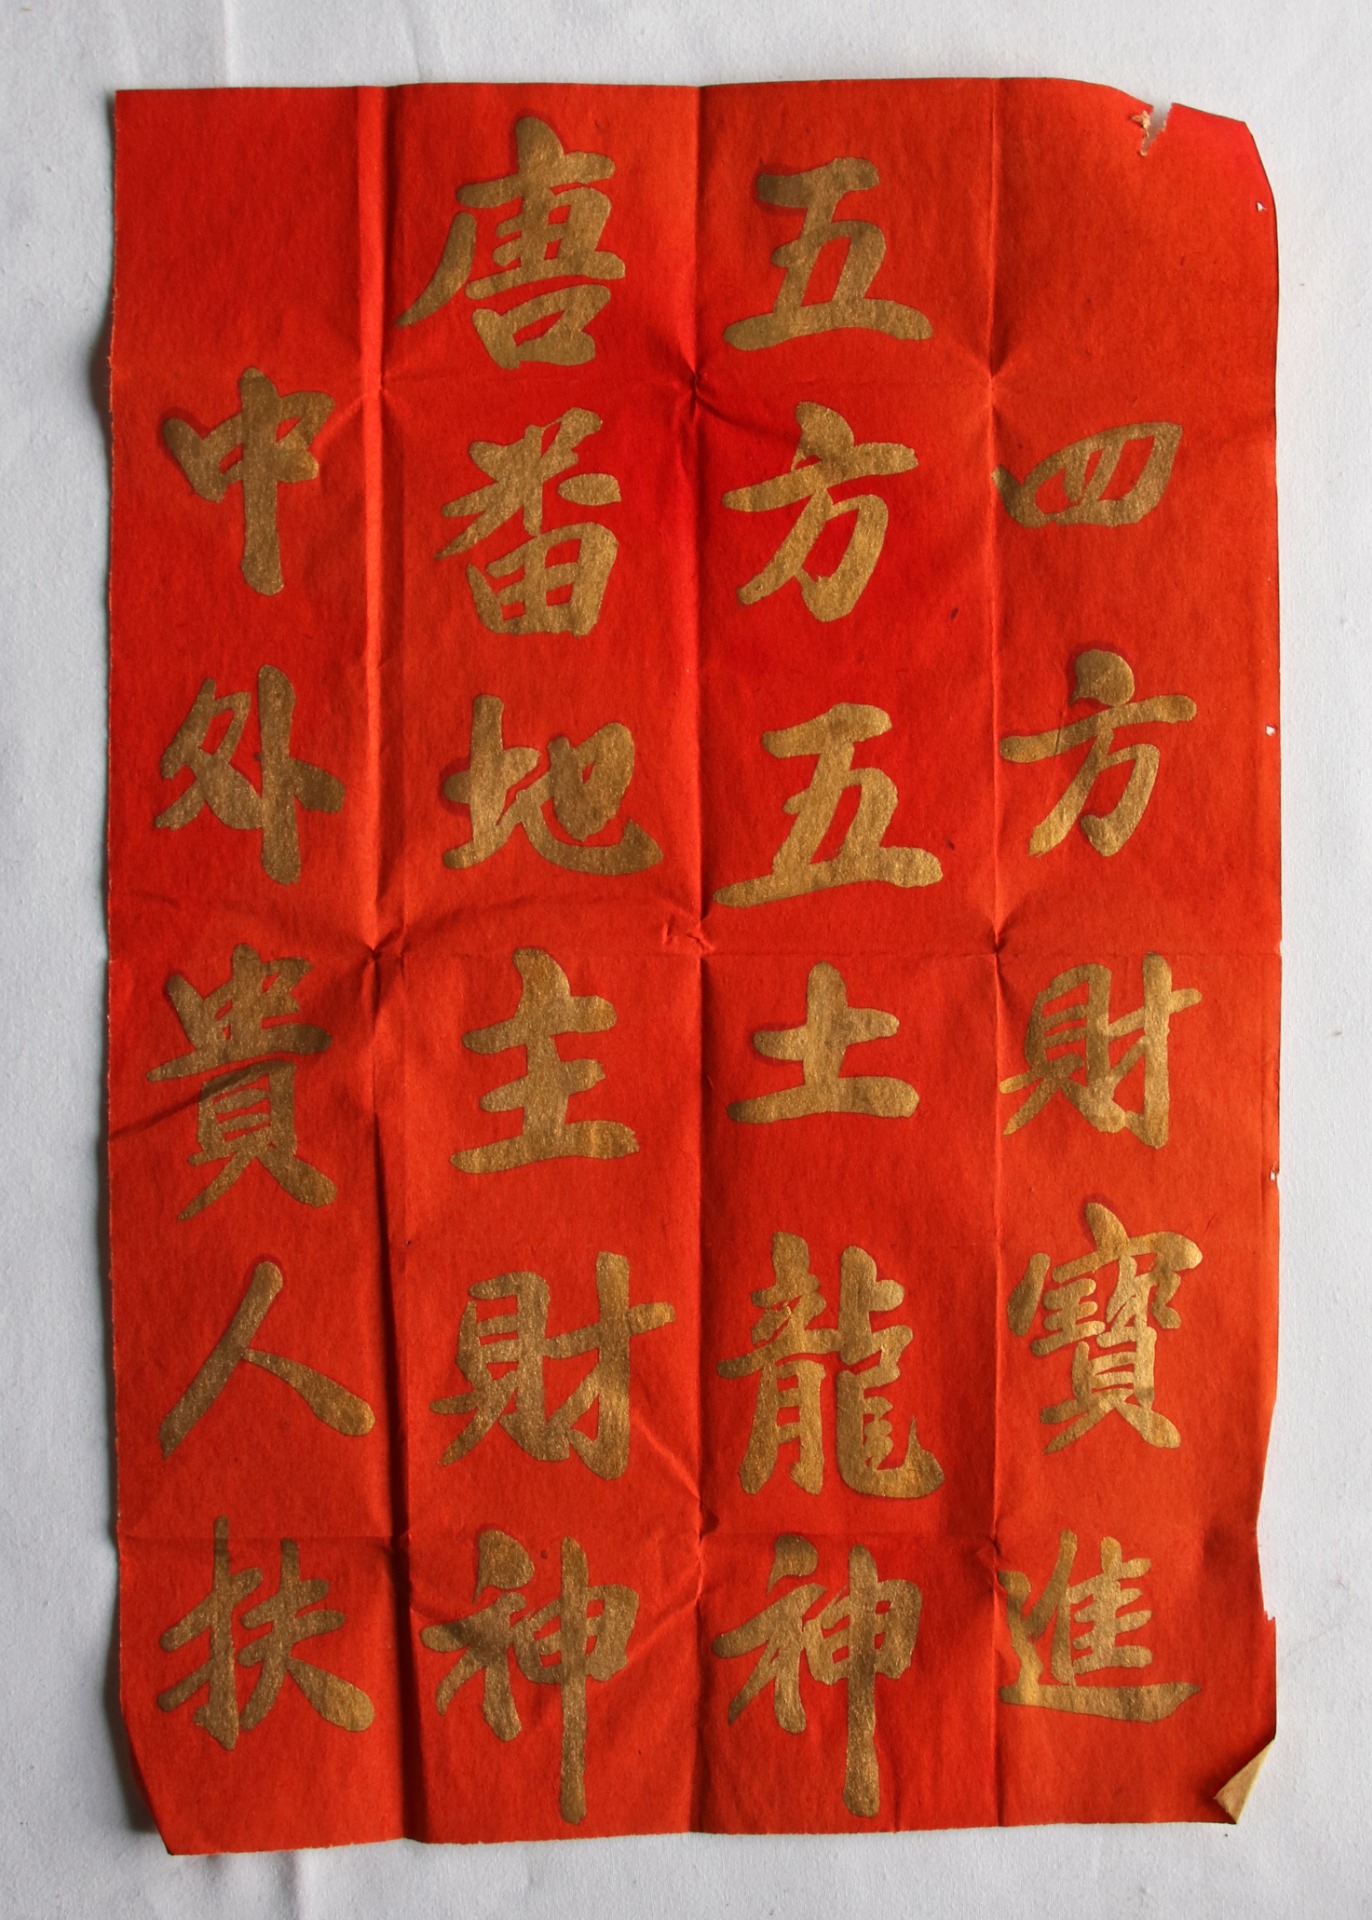 四方財寶進
五方五土龍神
唐番地主財神
中外貴人扶